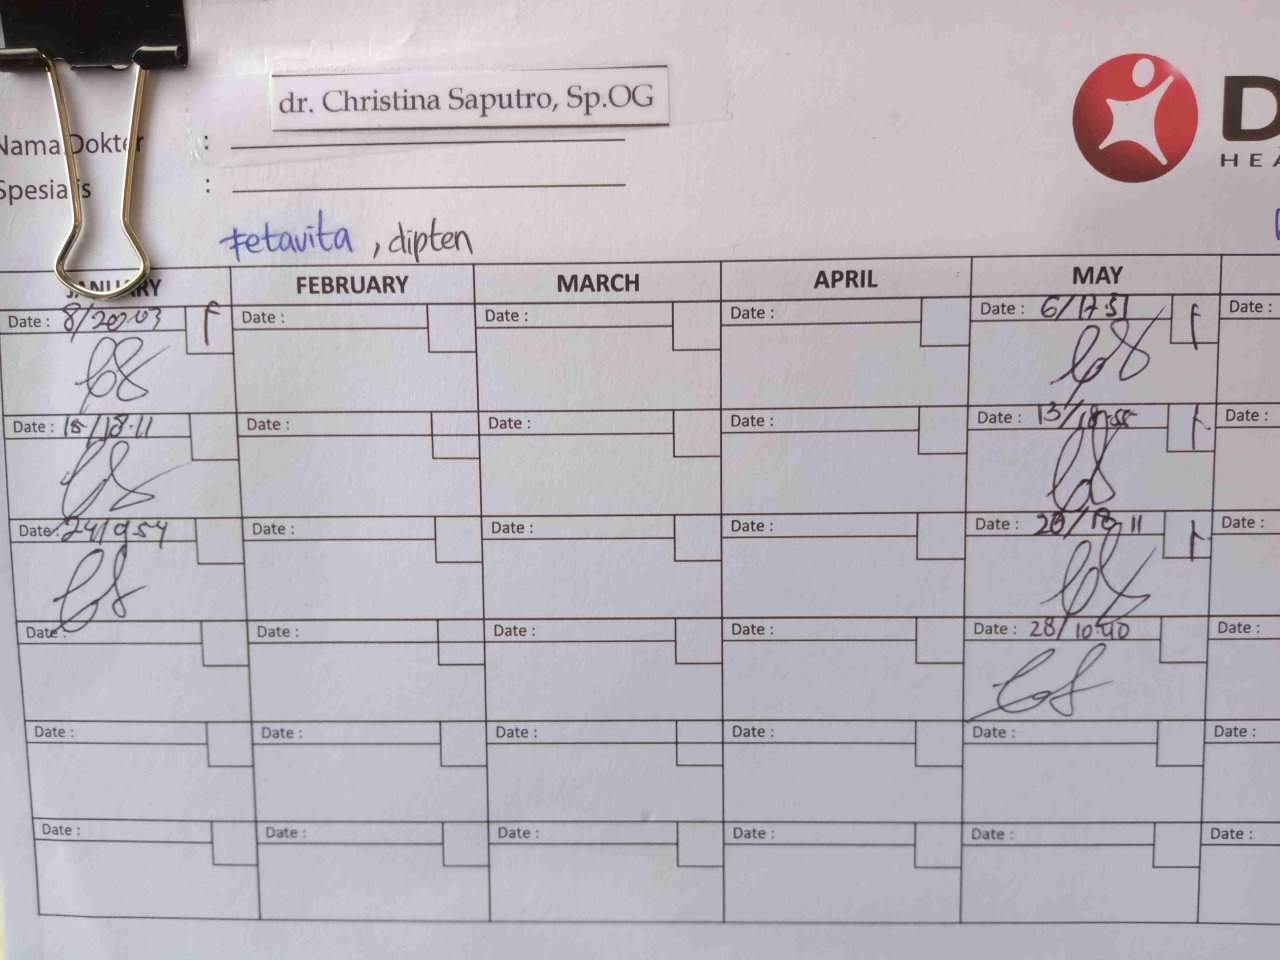 dr. Christina Saputro, Sp.OG
Nama Dokter :
Spesialis :
HEA
Fetavita , dipten
JANUARY FEBRUARY MARCH APRIL MAY
Date : 8/20.03 F Date : Date : Date : Date : 6/17.51 F Date :
Date : 15/18.11 Date : Date : Date : Date : 13/18.55 Date :
Date : 24/9.54 Date : Date : Date : Date : 20/18.11 Date :
Date : Date : Date : Date : Date : 28/10.40 Date :
Date : Date : Date : Date : Date : Date :
Date : Date : Date : Date : Date : Date :